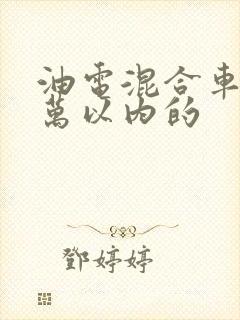 油電混合車
萬以内的
鄧婷婷